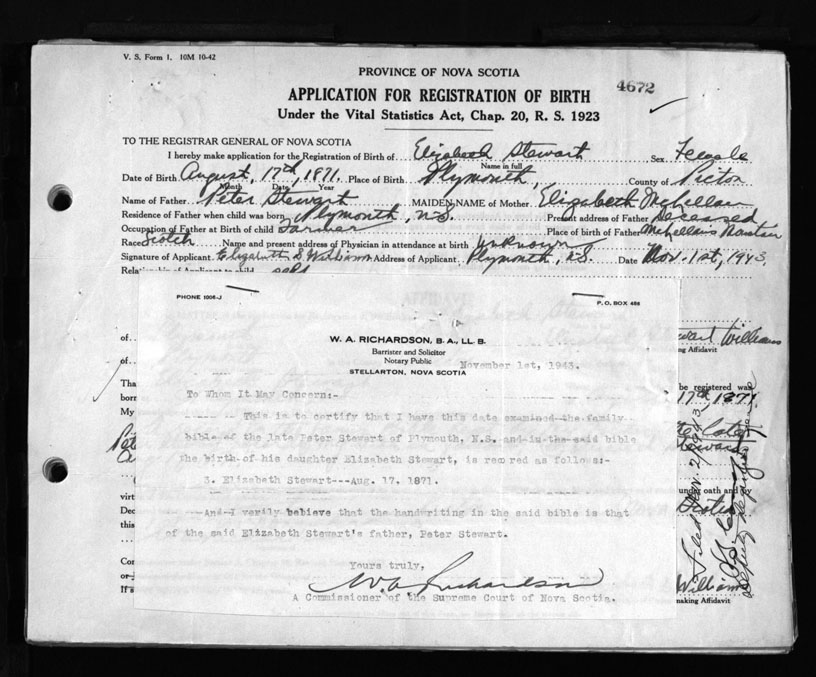 V. S. Form 1. 10M 10-42
PROVINCE OF NOVA SCOTIA
4672
APPLICATION FOR REGISTRATION OF BIRTH
Under the Vital Statistics Act, Chap. 20, R. S. 1923
TO THE REGISTRAR GENERAL OF NOVA SCOTIA
I hereby make application for the Registration of Birth of Stewart Sex Female
Name in full
Date of Birth August, 17th, 1871. Place of Birth Plymouth, County of Pictou
Month Date Year
Name of Father Peter Stewart MAIDEN NAME of Mother Elizabeth McLellan
Residence of Father when child was born Plymouth, N.S. Present address of Father Deceased
Occupation of Father at Birth of child Farmer Place of birth of Father McLellans
Race Scotch Name and present address of Physician in attendance at birth unknown
Signature of Applicant Elizabeth S Williams Address of Applicant Plymouth, N.S. Date Nov. 1st, 1943.
Relationship of Applicant to child self
PHONE 1006-J
P.O. BOX 488
W. A. RICHARDSON, B. A., LL. B.
Barrister and Solicitor
Notary Public
STELLARTON, NOVA SCOTIA
November 1st, 1943.
To Whom It May Concern:-
This is to certify that I have this date examined the family
bible of the late Peter Stewart of Plymouth, N.S. and in the said bible
the birth of his daughter Elizabeth Stewart, is recored as follows:-
3. Elizabeth Stewart---Aug. 17. 1871.
And I verily believe that the handwriting in the said bible is that
of the said Elizabeth Stewart's father, Peter Stewart.
Yours truly,
W. A. Richardson
A Commissioner of the Supreme Court of Nova Scotia.
of
of
Tha
born
My
virt
Dec
this
Con
or
If s
Stewart Williams
ing Affidavit
be registered was
17th 1871
under oath and by
Williams
making Affidavit
Filed Nov. 2/1943,
Deputy Registrar